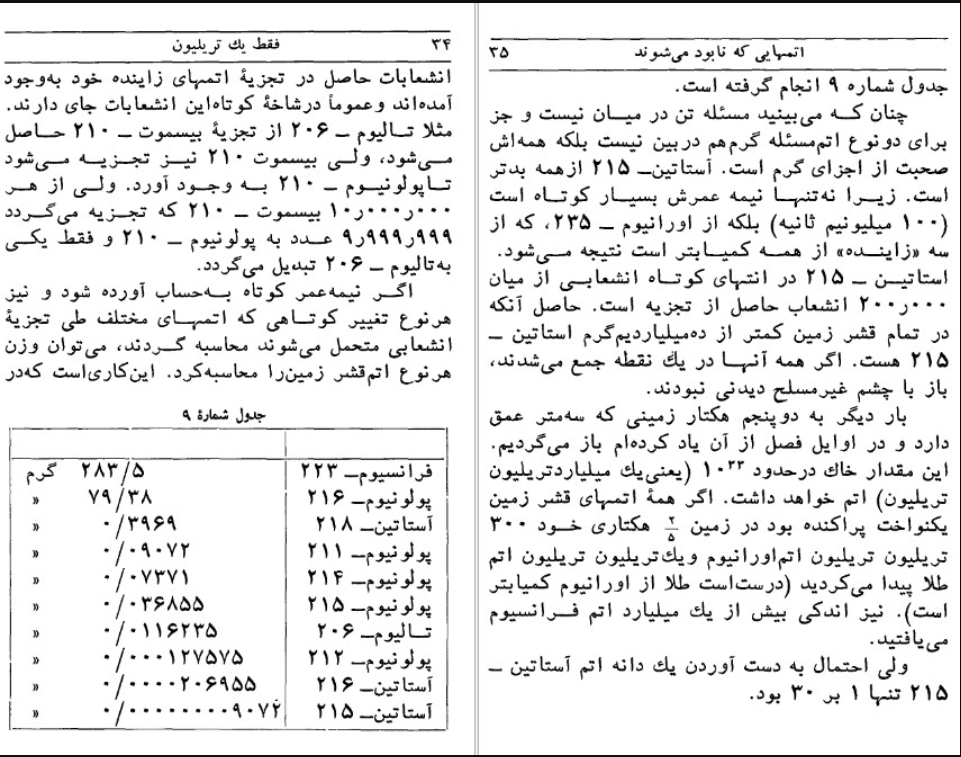 ۳۴ فقط یك تریلیون
انشعابات حاصل در تجزیهٔ اتمهای زاینده خود به‌وجود
آمده‌اند وعموماً درشاخهٔ کوتاه‌این انشعابات جای دارند.
مثلا تـالیوم ــ ۲۰۶ از تجزیهٔ بیسموت ــ ۲۱۰ حـاصل
مـی‌شود، ولـی بیسموت ۲۱۰ نیـز تجـزیـه مـی‌شود
تـاپولونیـوم ــ ۲۱۰ بـه وجـود آورد. ولـی از هـر
۱۰٫۰۰۰٫۰۰۰ بیسموت ــ ۲۱۰ که تجـزیه می‌گـردد
۹٫۹۹۹٫۹۹۹ عـدد به پولونیوم ــ ۲۱۰ و فقط یکـی
به‌تالیوم ــ ۲۰۶ تبدیل می‌گردد.
اگـر نیمه‌عمر کوتاه بـه‌حساب آورده شود و نیز
هرنوع تغییر کوتـاهی که اتمهـای مختلف طی تجزیهٔ
انشعابی متحمل می‌شوند محاسبه گـردند، می‌توان وزن
هرنوع اتم‌قشر زمین‌را محاسبه‌کرد. این‌کاری‌است که‌در
جدول شمارهٔ ۹
فرانسیوم‌ــ ۲۲۳ ۲۸۳/۵ گرم
پولونیوم‌ــ ۲۱۶ ۷۹/۳۸ «
آستاتین‌ــ ۲۱۸ ۰/۳۹۶۹ «
پولونیوم‌ــ ۲۱۱ ۰/۰۹۰۷۲ «
پولونیوم‌ــ ۲۱۴ ۰/۰۷۳۷۱ «
پولونیوم‌ــ ۲۱۵ ۰/۰۳۶۸۵۵ «
تـالیوم‌ــ ۲۰۶ ۰/۰۱۱۶۲۳۵ «
پولونیوم‌ــ ۲۱۲ ۰/۰۰۰۱۲۷۵۷۵ «
آستاتین‌ــ ۲۱۶ ۰/۰۰۰۰۲۰۶۹۵۵ «
آستاتین‌ــ ۲۱۵ ۰/۰۰۰۰۰۰۰۰۹۰۷۲ «
اتمهایی که نابود می‌شوند ۳۵
جدول شماره ۹ انجام گرفته است.
چنان کـه می‌بینید مسئله تن در میـان نیست و جز
برای دونوع اتم‌مسئله گرم‌هم دربین نیست بلکه همه‌اش
صحبت از اجزای گرم است. آستاتین‌ــ ۲۱۵ ازهمه بدتر
است. زیـرا نه‌تنهـا نیمه عمرش بسیـار کوتـاه است
(۱۰۰ میلیونیم ثانیه) بلکه از اورانیوم ــ ۲۳۵، که از
سه «زاینـده» از همـه کمیـابتر است نتیجه مـی‌شود.
استاتیـن ــ ۲۱۵ در انتهای کوتـاه انشعابـی از میان
۲۰۰٫۰۰۰ انشعاب حاصل از تجزیه است. حاصل آنکه
در تمام قشر زمین کمتر از ده‌میلیاردیم‌گرم استاتین ــ
۲۱۵ هست. اگر همه آنهـا در یك نقطه جمع می‌شدند،
باز با چشم غیرمسلح دیدنی نبودند.
بار دیگر به دوپنجم هکتار زمینی که سه‌متر عمق
دارد و در اوایل فصل از آن یاد کرده‌ام باز می‌گردیم.
این مقدار خاك درحدود ۱۰۳۳ (یعنی‌یك میلیاردتریلیون
تریلیون) اتم خواهد داشت. اگر همهٔ اتمهای قشر زمین
یکنواخت پراکنده بود در زمین ۲/۵ هکتاری خـود ۳۰۰
تریلیون تریلیون اتم‌اورانیوم ویك‌تریلیون تریلیون اتم
طلا پیدا می‌کردید (درست‌است طلا از اورانیوم کمیابتر
است). نیز اندکی بیش از یك میلیارد اتم فـرانسیوم
می‌یافتید.
ولی احتمال به دست آوردن یك دانه اتم آستاتین ــ
۲۱۵ تنها ۱ بر ۳۰ بود.